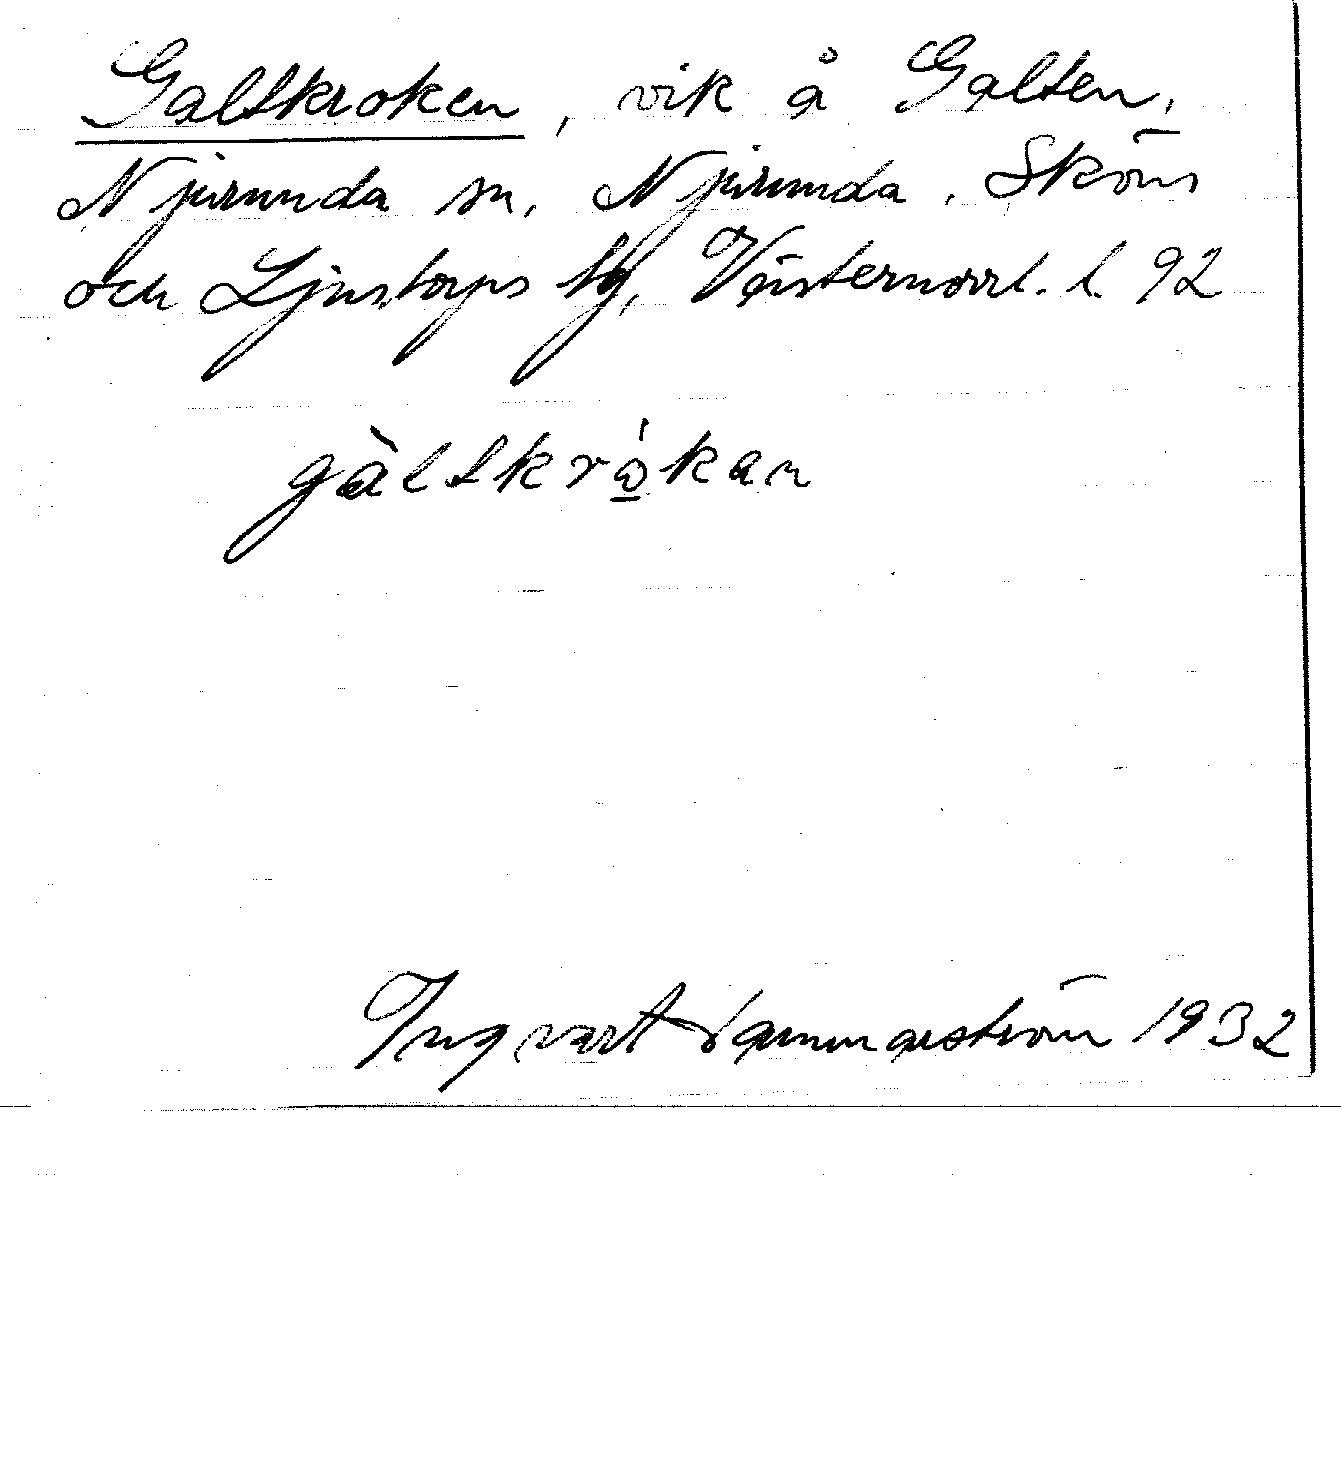 Galtkroken, vik å Galten,
Njurunda sn, Njurunda, Sköns
och Ljustorps tg, Västernorrl. l. 92
gàltkrώ̲kan
Ingvart Hammarström 1932